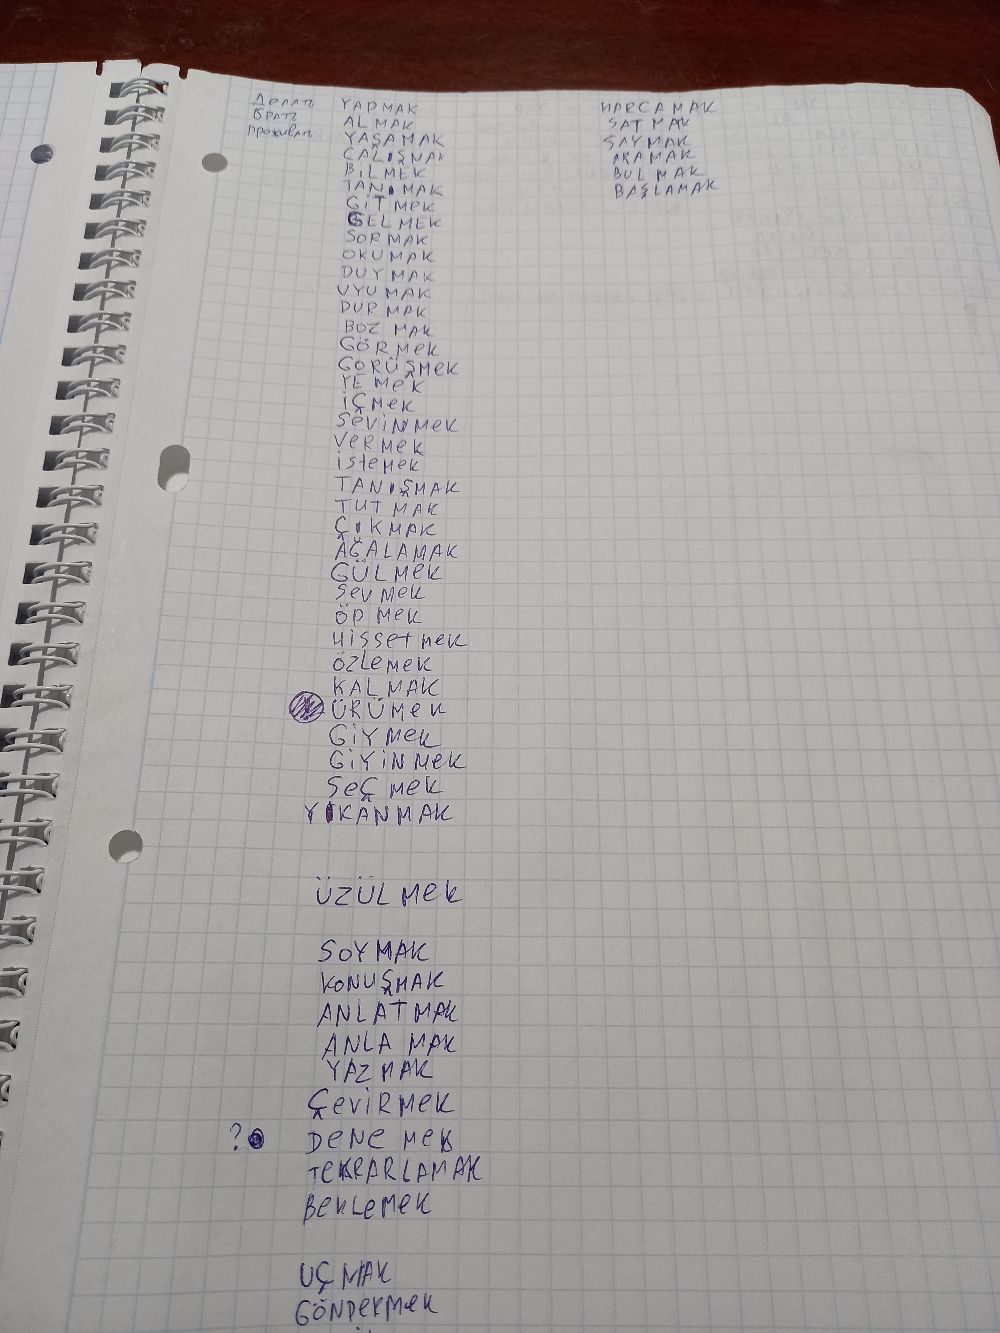 Делать YAPMAK
Брать ALMAK
проживать YAŞAMAK
ÇALIŞMAK
BİLMEK
TANIMAK
GİTMEK
GELMEK
SORMAK
OKUMAK
DUYMAK
UYUMAK
DURMAK
BOZMAK
GÖRMEK
GÖRÜŞMEK
YEMEK
İÇMEK
SEVİNMEK
VERMEK
İSTEMEK
TANIŞMAK
TUTMAK
ÇIKMAK
AĞALAMAK
GÜLMEK
SEVMEK
ÖPMEK
HİSSETMEK
ÖZLEMEK
KALMAK
ÜRÜMEK
GİYMEK
GİYİNMEK
SEÇMEK
YIKANMAK
ÜZÜLMEK
SOYMAK
KONUŞMAK
ANLATMAK
ANLAMAK
YAZMAK
ÇEVİRMEK
? DENEMEK
TEKRARLAMAK
BEKLEMEK
UÇMAK
GÖNDERMEK
HARCAMAK
SATMAK
SAYMAK
ARAMAK
BULMAK
BAŞLAMAK